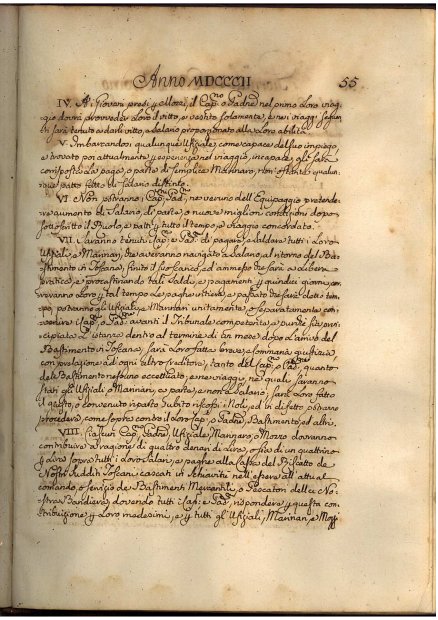 Anno MDCCCII
55
IV. Ai Giovani presi p Mozzi, il Cap.no o Padne nel primo Loro viag-
gio dovrà provveder Loro il vitto, e vestito solamente, e nei viaggi
sarà tenuto a darli vitto, e salario proporzionato alla Loro abilità.
V. Imbarcandosi qualunque Ufiziale, come capace del suo impiego,
e trovato poi attualmente p esperienza nel viaggio, incapace, gli sarà
corrisposto la paga, o parte di semplice Marinaro, non ostante qualun-
que patto fatto di Salario distinto.
VI. Non potranno i Cap.ni Pad.ni, ne veruno dell'Equipaggio pretende-
re aumento di Salario, di parte, o nuove migliori condizioni dopo
sottoscritto il Ruolo, e p tutto il tempo, e viaggio concordato.
VII. Saranno tenuti i Cap.ni e Pad.ni di pagare, e saldare tutti i Loro
Ufiziali, e Marinari, che averanno navigato a Salario al ritorno del Ba-
stimento in Toscana, finito il suo scarico, ed ammesso che sarà a Libera
pratica, e procrastinando tali Saldi, e pagamenti p quindici giorni, cor-
reranno Loro p tal tempo Le paghe intiere, e passato che sarà detto tem-
po, potranno gli Ufiziali, e Marinari unitamente, o separatamente con-
venire i Cap.ni, o Pad.ni avanti il Tribunale competente, e purchè sia prin-
cipiata L'istanza dentro al termine di un mese dopo L'arrivo del
Bastimento in Toscana, sarà Loro fatta breve, e sommaria giustizia,
con prelazione ad ogni altro Creditore, tanto del Cap.no, o Pad.ne, quanto
del Bastimento nessuno eccettuato, e nei viaggi, ne' quali saranno
stati gli Ufiziali, o Marinari, a parte, e non a Salario, sarà Loro fatto
il conto, o convenuto riparto subito riscossi i Noli, ed in difetto potranno
procedere, come sopra contro il Loro Cap.no o Padne, Bastimento, ed altri.
VIII. Ciascun Cap.no, Padne, Ufiziale, Marinaro, Mozzo dovranno
contribuire a ragione di quattro denari di lira, o sia di un quattrino
p Lira sopra tutti i Loro Salari, e paghe alla Cassa del Riscatto de
Nostri Sudditi Toscani cascati in Schiavitù nell'essere all'attual
comando, o servizio de Bastimenti Mercantili, o Pescatori della No-
stra Bandiera, dovendo tutti i Cap.ni e Pad.ni rispondere p questa con-
tribuzione p Loro medesimi, e p tutti gli Ufiziali, Marinari, e Mozzi